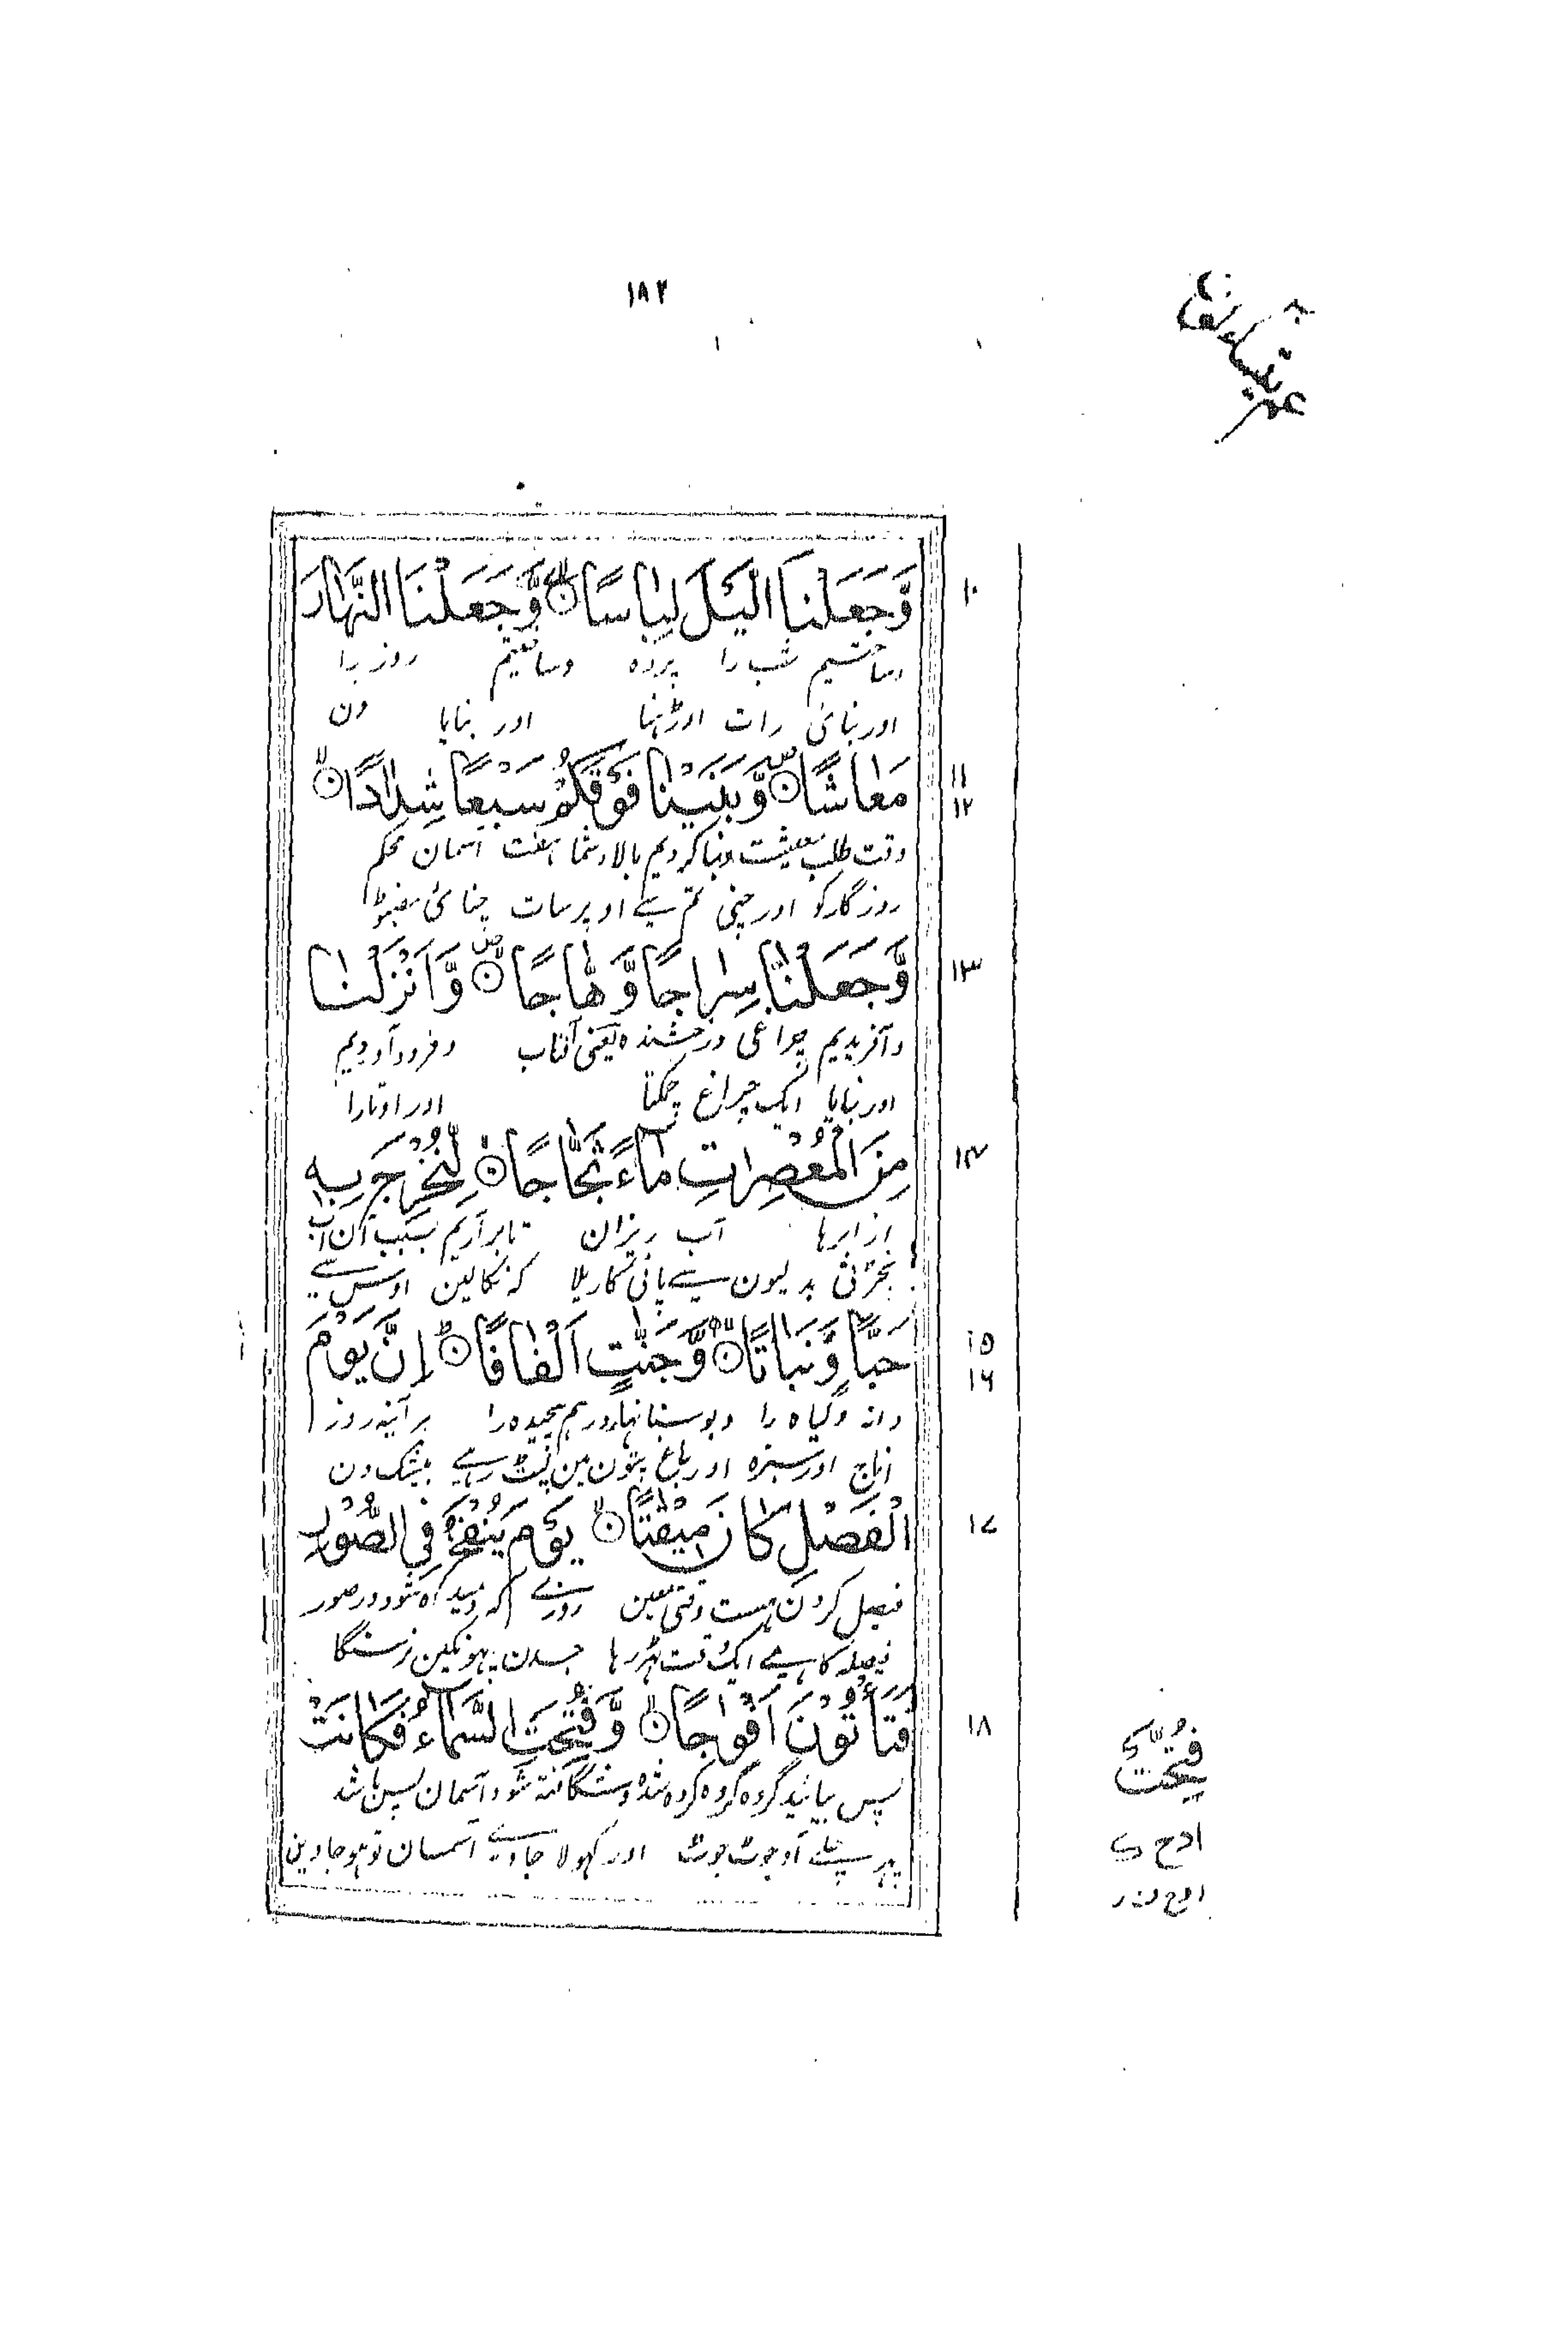 ۱۸۲
عم یتساءلون
۱۰
وَّجَعَلْنَا الَّيْلَ لِبَاسًا ۝ وَّجَعَلْنَا النَّهَارَ
وساختیم شب را پرده وساختیم روز را
اور بنائی رات اوڑہنا اور بنایا دن
۱۱
۱۲
مَعَاشًا ۝ وَّبَنَيْنَا فَوْقَكُمْ سَبْعًا شِدَادًا ۝
وقت طلب معیشت وبنا کردیم بالاء شما هفت آسمان محکم
روزگار کو اور چنی تم سے اوپر سات چنائی مضبوط
۱۳
وَّجَعَلْنَا سِرَاجًا وَّهَّاجًا ۝ وَّاَنْزَلْنَا
وآفریدیم چراغی درخشنده یعنی آفتاب وفرود آوردیم
اور بنایا ایک چراغ چمکتا اور اوتارا
۱۴
مِنَ الْمُعْصِرَاتِ مَاءً ثَجَّاجًا ۝ لِّنُخْرِجَ بِهٖ
از ابرها آب ریزان تا برآریم بسبب آن آب
نچڑتی بدلیون سے پانی کا ریلا کہ نکالین اوس سے
۱۵
۱۶
حَبًّا وَّنَبَاتًا ۝ وَّجَنّٰتٍ اَلْفَافًا ۝ اِنَّ يَوْمَ
دانه وگیاه را وبوستانهاء درهم پیچیده را هرآینه روز
اناج اور سبزه اور باغ پتون مین لپٹ رہے بیشک دن
۱۷
الْفَصْلِ كَانَ مِيْقَاتًا ۝ يَوْمَ يُنْفَخُ فِي الصُّوْرِ
فیصل کردن هست وقتی معین روزے که دمیده شود در صور
فیصله کا ہے ایک وقت ٹھر رہا جسدن پہونکین نرسنگا
۱۸
فَتَأْتُوْنَ اَفْوَاجًا ۝ وَّفُتِحَتِ السَّمَاءُ فَكَانَتْ
پس بیائید گروه گروه شده وشگافته شود آسمان پس باشد
پہر چلے آو جوٹ جوٹ اور کہولا جاوے آسمان تو ہو جاوین
فُتِّحَت
ادح ی